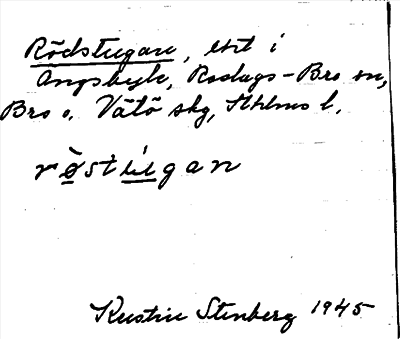 Rödstugan, ent i
Ängsbyle, Roslags-Bro sn,
Bro o. Vätö skg, Sthlms l.
røstugan
Kerstin Stenberg 1945